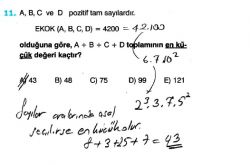 11. A, B, C ve D pozitif tam sayılardır.
EKOK (A, B, C, D) = 4200 = 42.100
olduğuna göre, A + B + C + D toplamının en kü-
çük değeri kaçtır?
6.7.10²
A) 43 B) 48 C) 75 D) 99 E) 121
2³.3.7.5²
Sayılar aralarında asal
seçilirse en küçük olur.
8+3+25+7=43